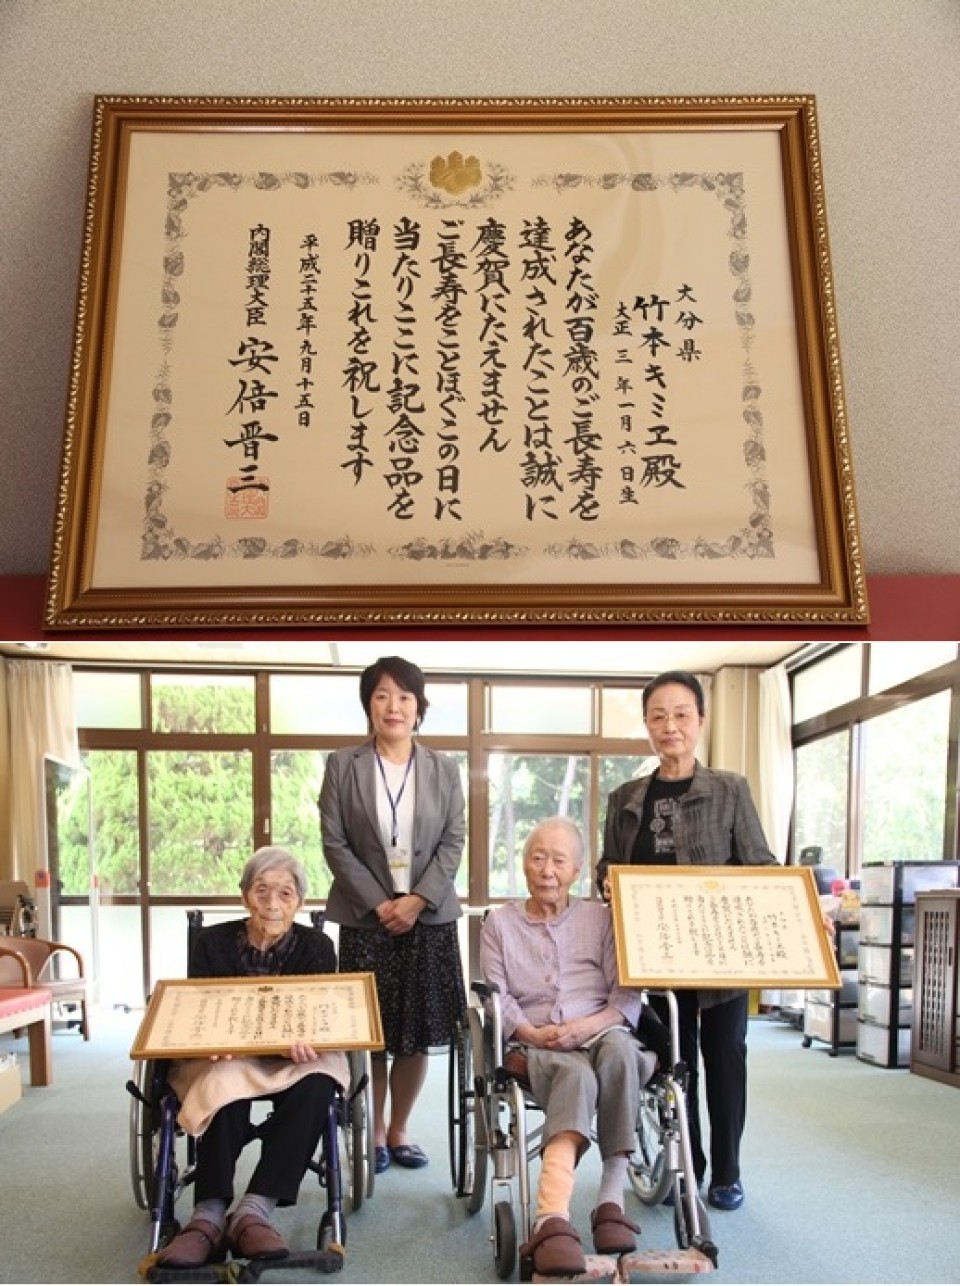 大分県
竹本キミヱ殿
大正三年一月六日生
あなたが百歳のご長寿を
達成されたことは誠に
慶賀にたえません
ご長寿をことほぐこの日に
当たりここに記念品を
贈りこれを祝します
平成二十五年九月十五日
内閣総理大臣 安倍晋三